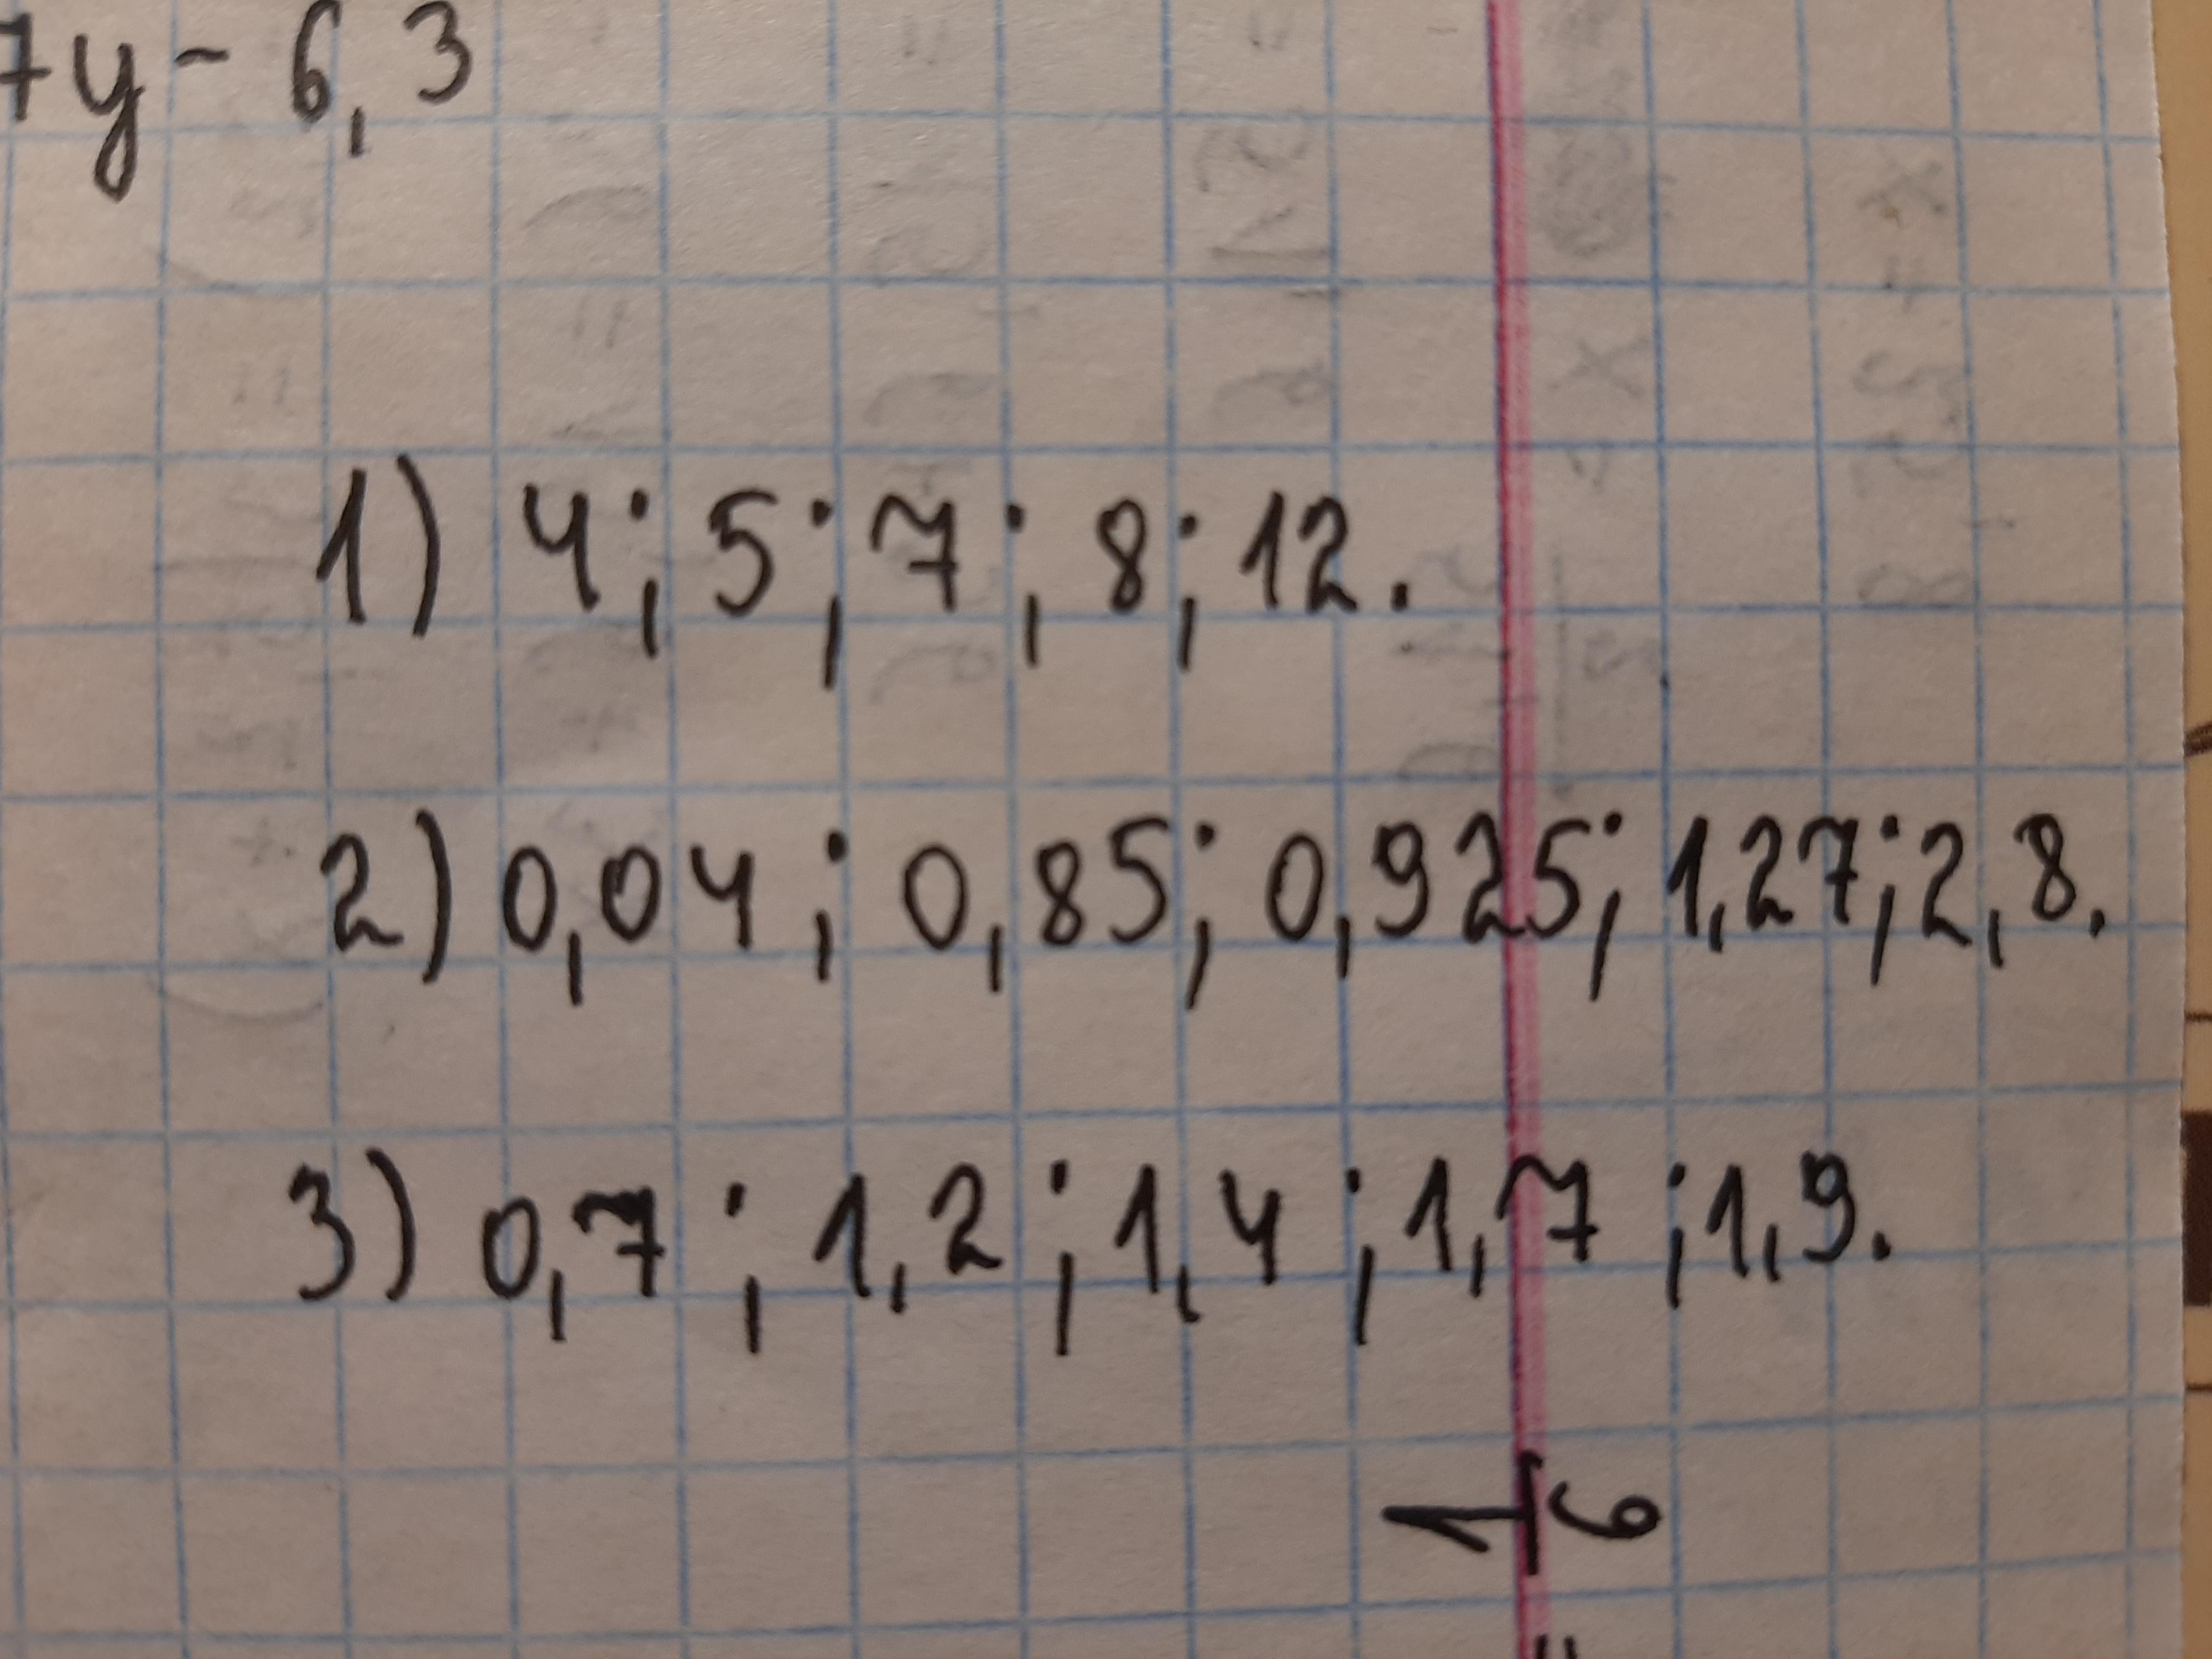 7y - 6,3
1) 4; 5; 7; 8; 12.
2) 0,04; 0,85; 0,925; 1,27; 2,8.
3) 0,7; 1,2; 1,4; 1,7; 1,9.
1/6
=